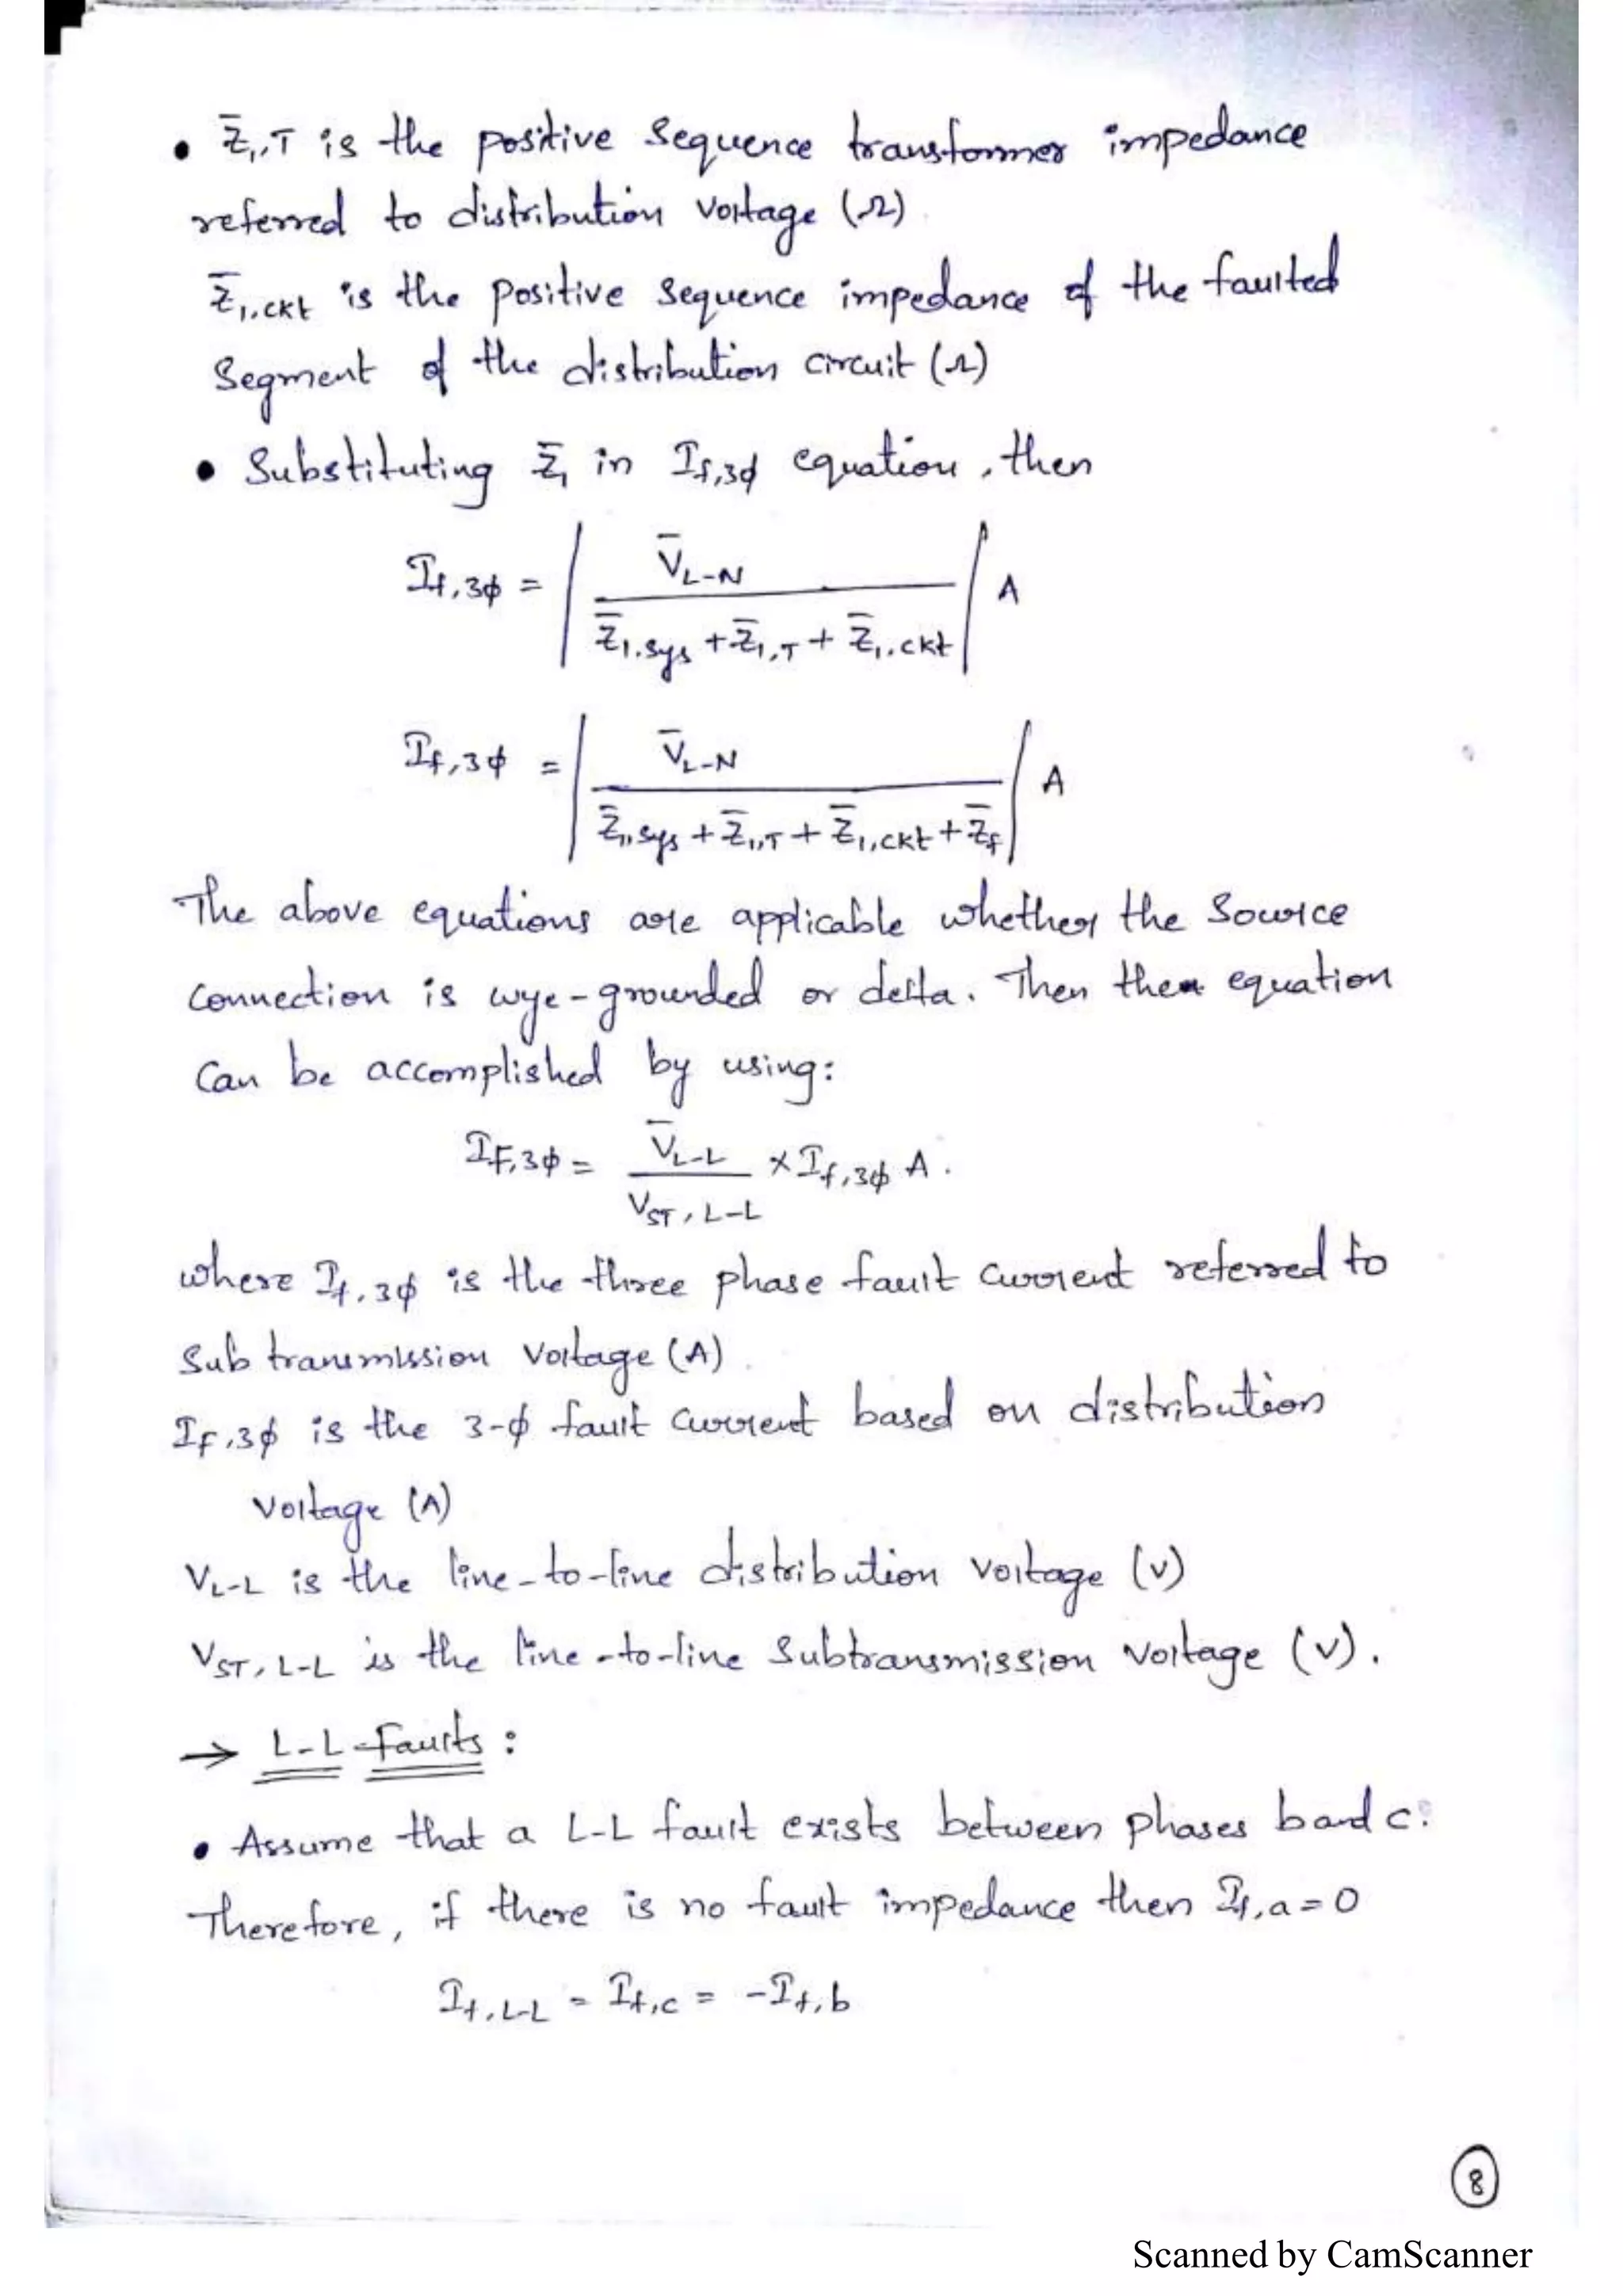 • Z̄₁,T is the positive sequence transformer impedance
referred to distribution voltage (Ω)
Z̄₁,ckt is the positive sequence impedance of the faulted
segment of the distribution circuit (Ω)
• Substituting Z̄₁ in If,3φ equation, then
If,3φ = | V̄L-N / (Z̄₁,sys + Z̄₁,T + Z̄₁,ckt) | A
If,3φ = | V̄L-N / (Z̄₁,sys + Z̄₁,T + Z̄₁,ckt + Z̄f) | A
The above equations are applicable whether the source
connection is wye-grounded or delta. Then the equation
can be accomplished by using:
IF,3φ = V̄L-L / VST,L-L × If,3φ A.
where If,3φ is the three phase fault current referred to
Sub transmission voltage (A)
IF,3φ is the 3-φ fault current based on distribution
voltage (A)
VL-L is the line-to-line distribution voltage (V)
VST,L-L is the line-to-line Subtransmission voltage (V).
→ L-L Faults :
• Assume that a L-L fault exists between phases b and c.
Therefore, if there is no fault impedance then If,a = 0
If,L-L = If,c = -If,b
8
Scanned by CamScanner